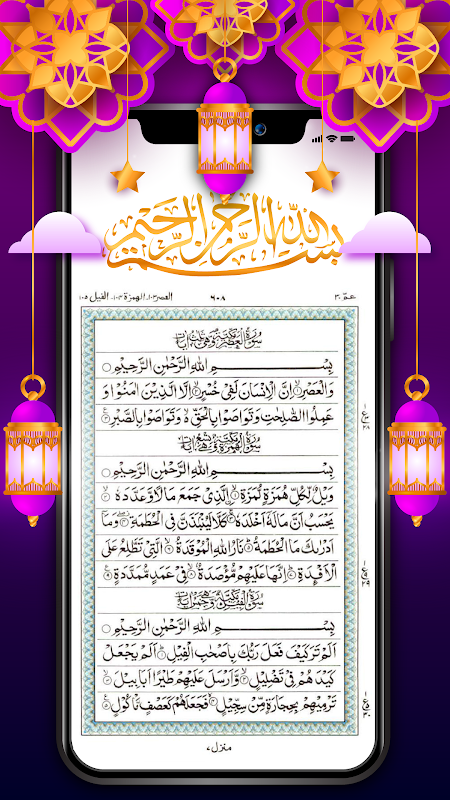 بِسْمِ اللهِ الرَّحْمٰنِ الرَّحِيْمِ
عمّ ٣٠ ٦٠٨ العصر ١٠٣، الهمزة ١٠٤، الفيل ١٠٥
سُوْرَةُ الْعَصْرِ مَكِّيَّةٌ وَّهِيَ ثَلٰثُ اٰيَاتٍ
بِسْـــــمِ اللهِ الرَّحْمٰنِ الرَّحِيْمِ ○
وَالْعَصْرِ ۙ﴿١﴾ اِنَّ الْاِنْسَانَ لَفِيْ خُسْرٍ ۙ﴿٢﴾ اِلَّا الَّذِيْنَ اٰمَنُوْا وَ
عَمِلُوا الصّٰلِحٰتِ وَتَوَاصَوْا بِالْحَقِّ ۙ۬ وَتَوَاصَوْا بِالصَّبْرِ ﴿٣﴾
سُوْرَةُ الْهُمَزَةِ مَكِّيَّةٌ وَّهِيَ تِسْعُ اٰيَاتٍ
بِسْـــــمِ اللهِ الرَّحْمٰنِ الرَّحِيْمِ ○
وَيْلٌ لِّكُلِّ هُمَزَةٍ لُّمَزَةِ ۙ﴿١﴾ اۨلَّذِيْ جَمَعَ مَالًا وَّعَدَّدَهٗ ۙ﴿٢﴾
يَحْسَبُ اَنَّ مَالَهٗٓ اَخْلَدَهٗ ۚ﴿٣﴾ كَلَّا لَيُنْۢبَذَنَّ فِي الْحُطَمَةِ ۖ﴿٤﴾ وَمَاۤ
اَدْرٰىكَ مَا الْحُطَمَةُ ؕ﴿٥﴾ نَارُ اللهِ الْمُوْقَدَةُ ۙ﴿٦﴾ الَّتِيْ تَطَّلِعُ عَلَى
الْاَفْـِٕدَةِ ؕ﴿٧﴾ اِنَّهَا عَلَيْهِمْ مُّؤْصَدَةٌ ۙ﴿٨﴾ فِيْ عَمَدٍ مُّمَدَّدَةٍ ﴿٩﴾
سُوْرَةُ الْفِيْلِ مَكِّيَّةٌ وَّهِيَ خَمْسُ اٰيَاتٍ
بِسْـــــمِ اللهِ الرَّحْمٰنِ الرَّحِيْمِ ○
اَلَمْ تَرَ كَيْفَ فَعَلَ رَبُّكَ بِاَصْحٰبِ الْفِيْلِ ؕ﴿١﴾ اَلَمْ يَجْعَلْ
كَيْدَهُمْ فِيْ تَضْلِيْلٍ ۙ﴿٢﴾ وَّاَرْسَلَ عَلَيْهِمْ طَيْرًا اَبَابِيْلَ ۙ﴿٣﴾
تَرْمِيْهِمْ بِحِجَارَةٍ مِّنْ سِجِّيْلٍ ۪ۙ﴿٤﴾ فَجَعَلَهُمْ كَعَصْفٍ مَّاْكُوْلٍ ﴿٥﴾
منزل ٧